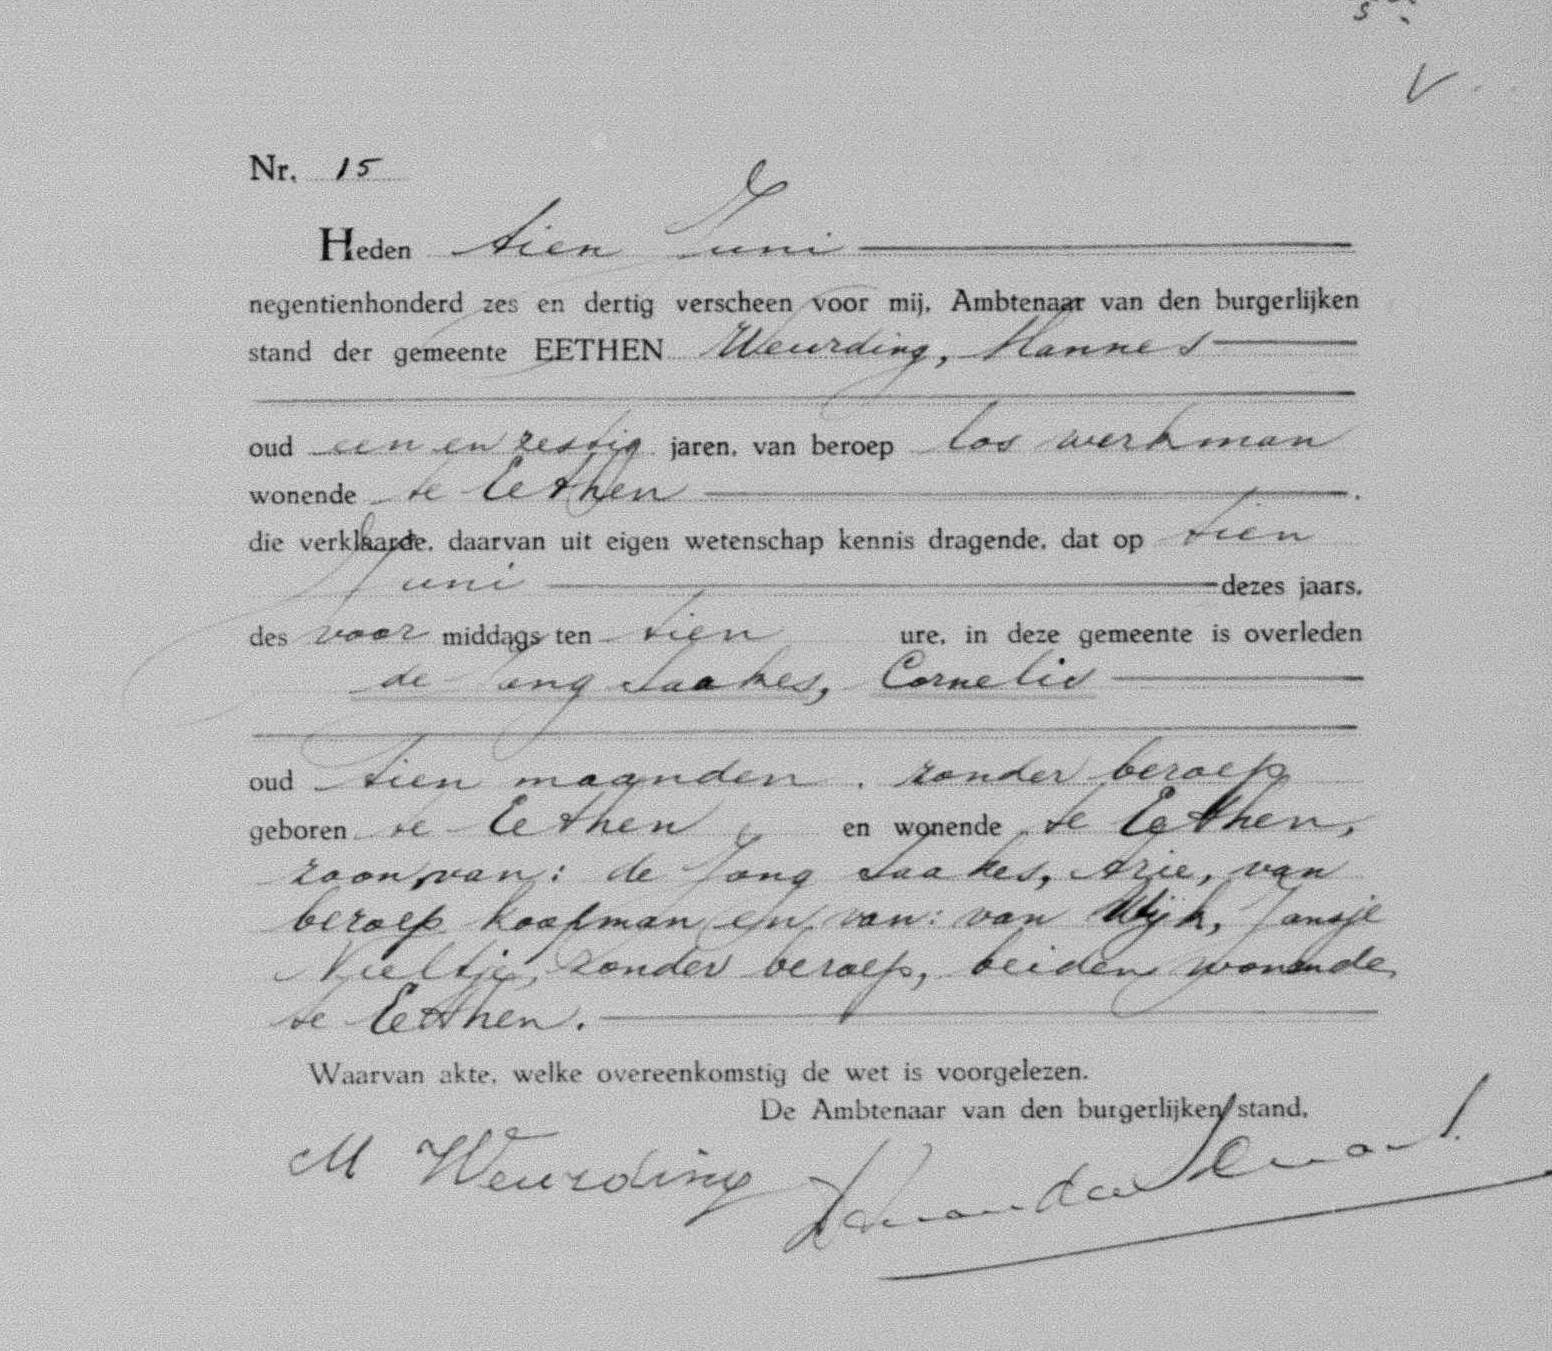 Nr. 15
Heden tien Juni
negentienhonderd zes en dertig verscheen voor mij, Ambtenaar van den burgerlijken
stand der gemeente EETHEN Weurding, Mannes
oud een en zestig jaren, van beroep los werkman
wonende te Eethen.
die verklaarde, daarvan uit eigen wetenschap kennis dragende, dat op tien
Juni dezes jaars,
des voor middags ten tien ure, in deze gemeente is overleden
de Jong Saakes, Cornelis
oud tien maanden, zonder beroep
geboren te Eethen en wonende te Eethen,
zoon van: de Jong Saakes, Arie, van
beroep koopman en van: van Wijk, Jansje
Neeltje, zonder beroep, beiden wonende
te Eethen.
Waarvan akte, welke overeenkomstig de wet is voorgelezen.
De Ambtenaar van den burgerlijken stand,
M Weurding